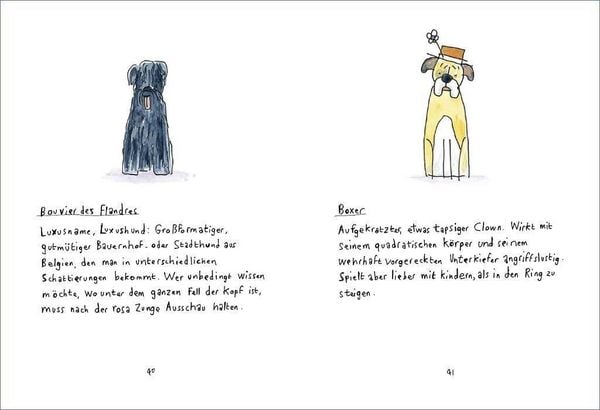 Bouvier des Flandres
Luxusname, Luxushund: Großformatiger,
gutmütiger Bauernhof- oder Stadthund aus
Belgien, den man in unterschiedlichen
Schattierungen bekommt. Wer unbedingt wissen
möchte, wo unter dem ganzen Fell der Kopf ist,
muss nach der rosa Zunge Ausschau halten.
40
Boxer
Aufgekratzter, etwas tapsiger Clown. Wirkt mit
seinem quadratischen Körper und seinem
wehrhaft vorgereckten Unterkiefer angriffslustig.
Spielt aber lieber mit Kindern, als in den Ring zu
steigen.
41